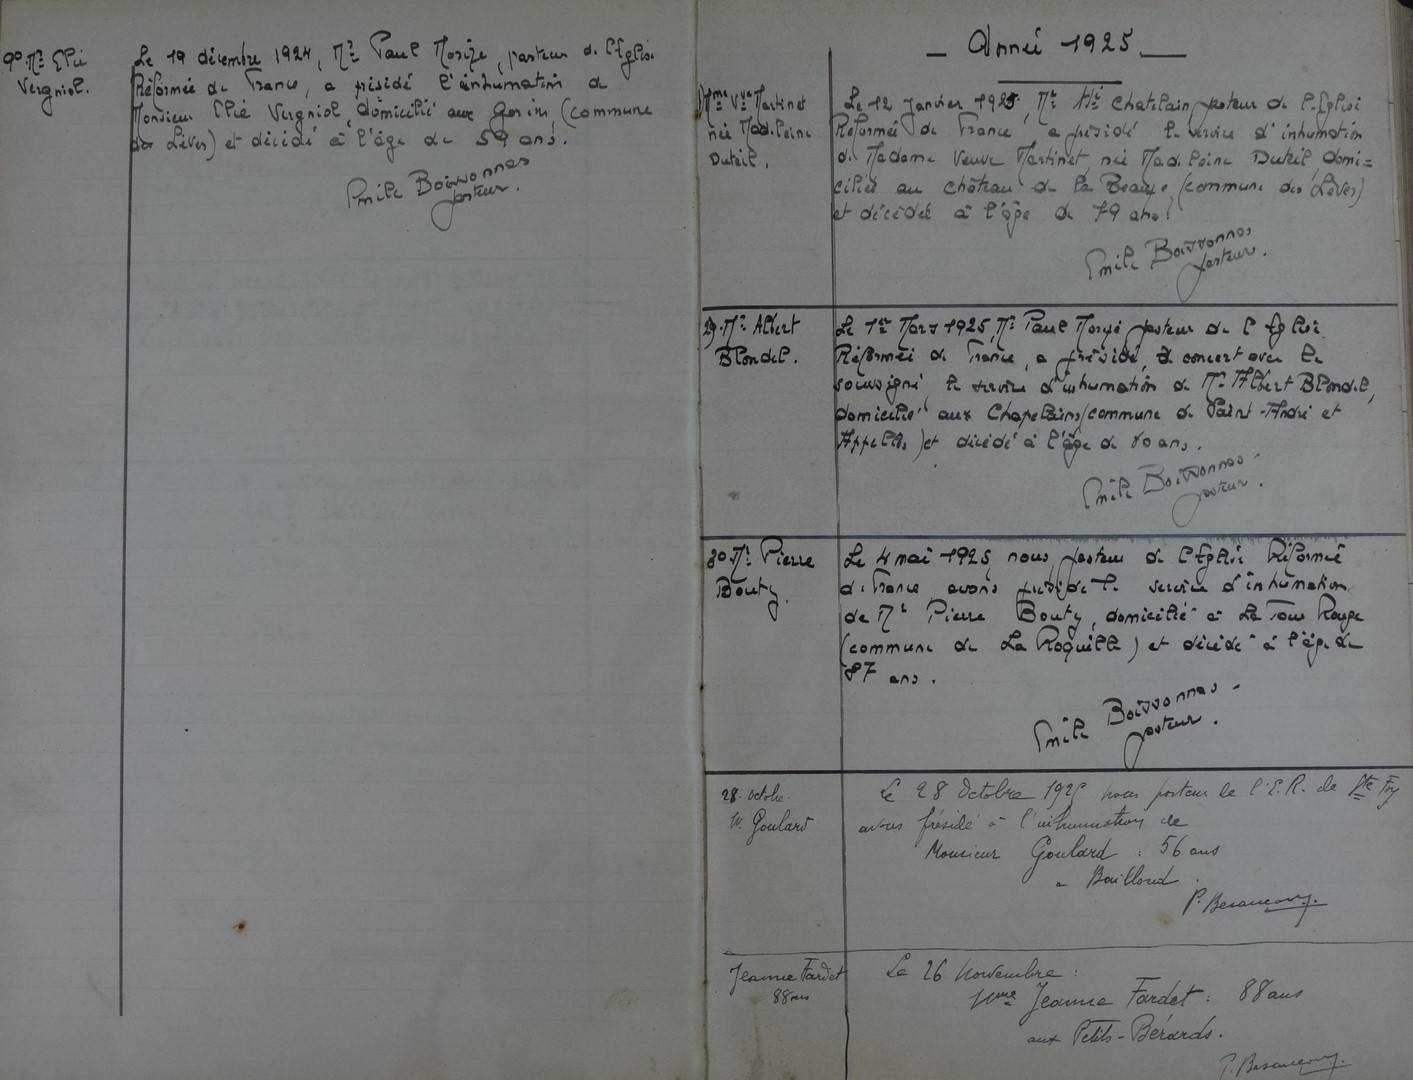 9º. Mr Elie
Vergniol.
Le 19 décembre 1924, Mr Paul Morize, pasteur de l'Eglise
Réformée de France, a présidé l'inhumation de
Monsieur Elie Vergniol, domicilié aux Gorins (commune
des Lèves) et décédé à l'âge de 59 ans.
Emile Boissonnas
pasteur.
_ Année 1925 _
1) Mme Vve Martinet
née Madeleine
Duteil.
Le 12 Janvier 1925, Mr Chatelain, pasteur de l'Eglise
Réformée de France, a présidé le service d'inhumation
de Madame Veuve Martinet, née Madeleine Duteil, domi=
ciliée au château de la Beauze, (commune des Lèves)
et décédée à l'âge de 79 ans.
Emile Boissonnas
pasteur.
2º). Mr Albert
Blondel.
Le 1er Mars 1925, Mr Paul Morize pasteur de l'Eglise
Réformée de France, a présidé, de concert avec le
soussigné, le service d'inhumation de Mr Albert Blondel,
domicilié aux Chapelains (commune de Saint-André et
Appelles,) et décédé à l'âge de 80 ans.
Emile Boissonnas -
pasteur.
3º Mr. Pierre
Bouty.
Le 4 mai 1925, nous, pasteur de l'Eglise Réformée
de France avons présidé le service d'inhumation
de Mr Pierre Bouty, domicilié à La Tour Rouge
(commune de La Roquille) et décédé à l'âge de
87 ans.
Emile Boissonnas -
pasteur.
28. octobre.
M. Goulard
Le 28 Octobre 1925 nous pasteur de l'E.R. de Ste Foy
avons présidé à l'inhumation de
Monsieur Goulard : 56 ans
à Bailloud.
P. Besançon.
Jeanne Fardet
88 ans
Le 26 Novembre :
Mme Jeanne Fardet : 88 ans
aux Petits-Bérards.
P. Besançon.